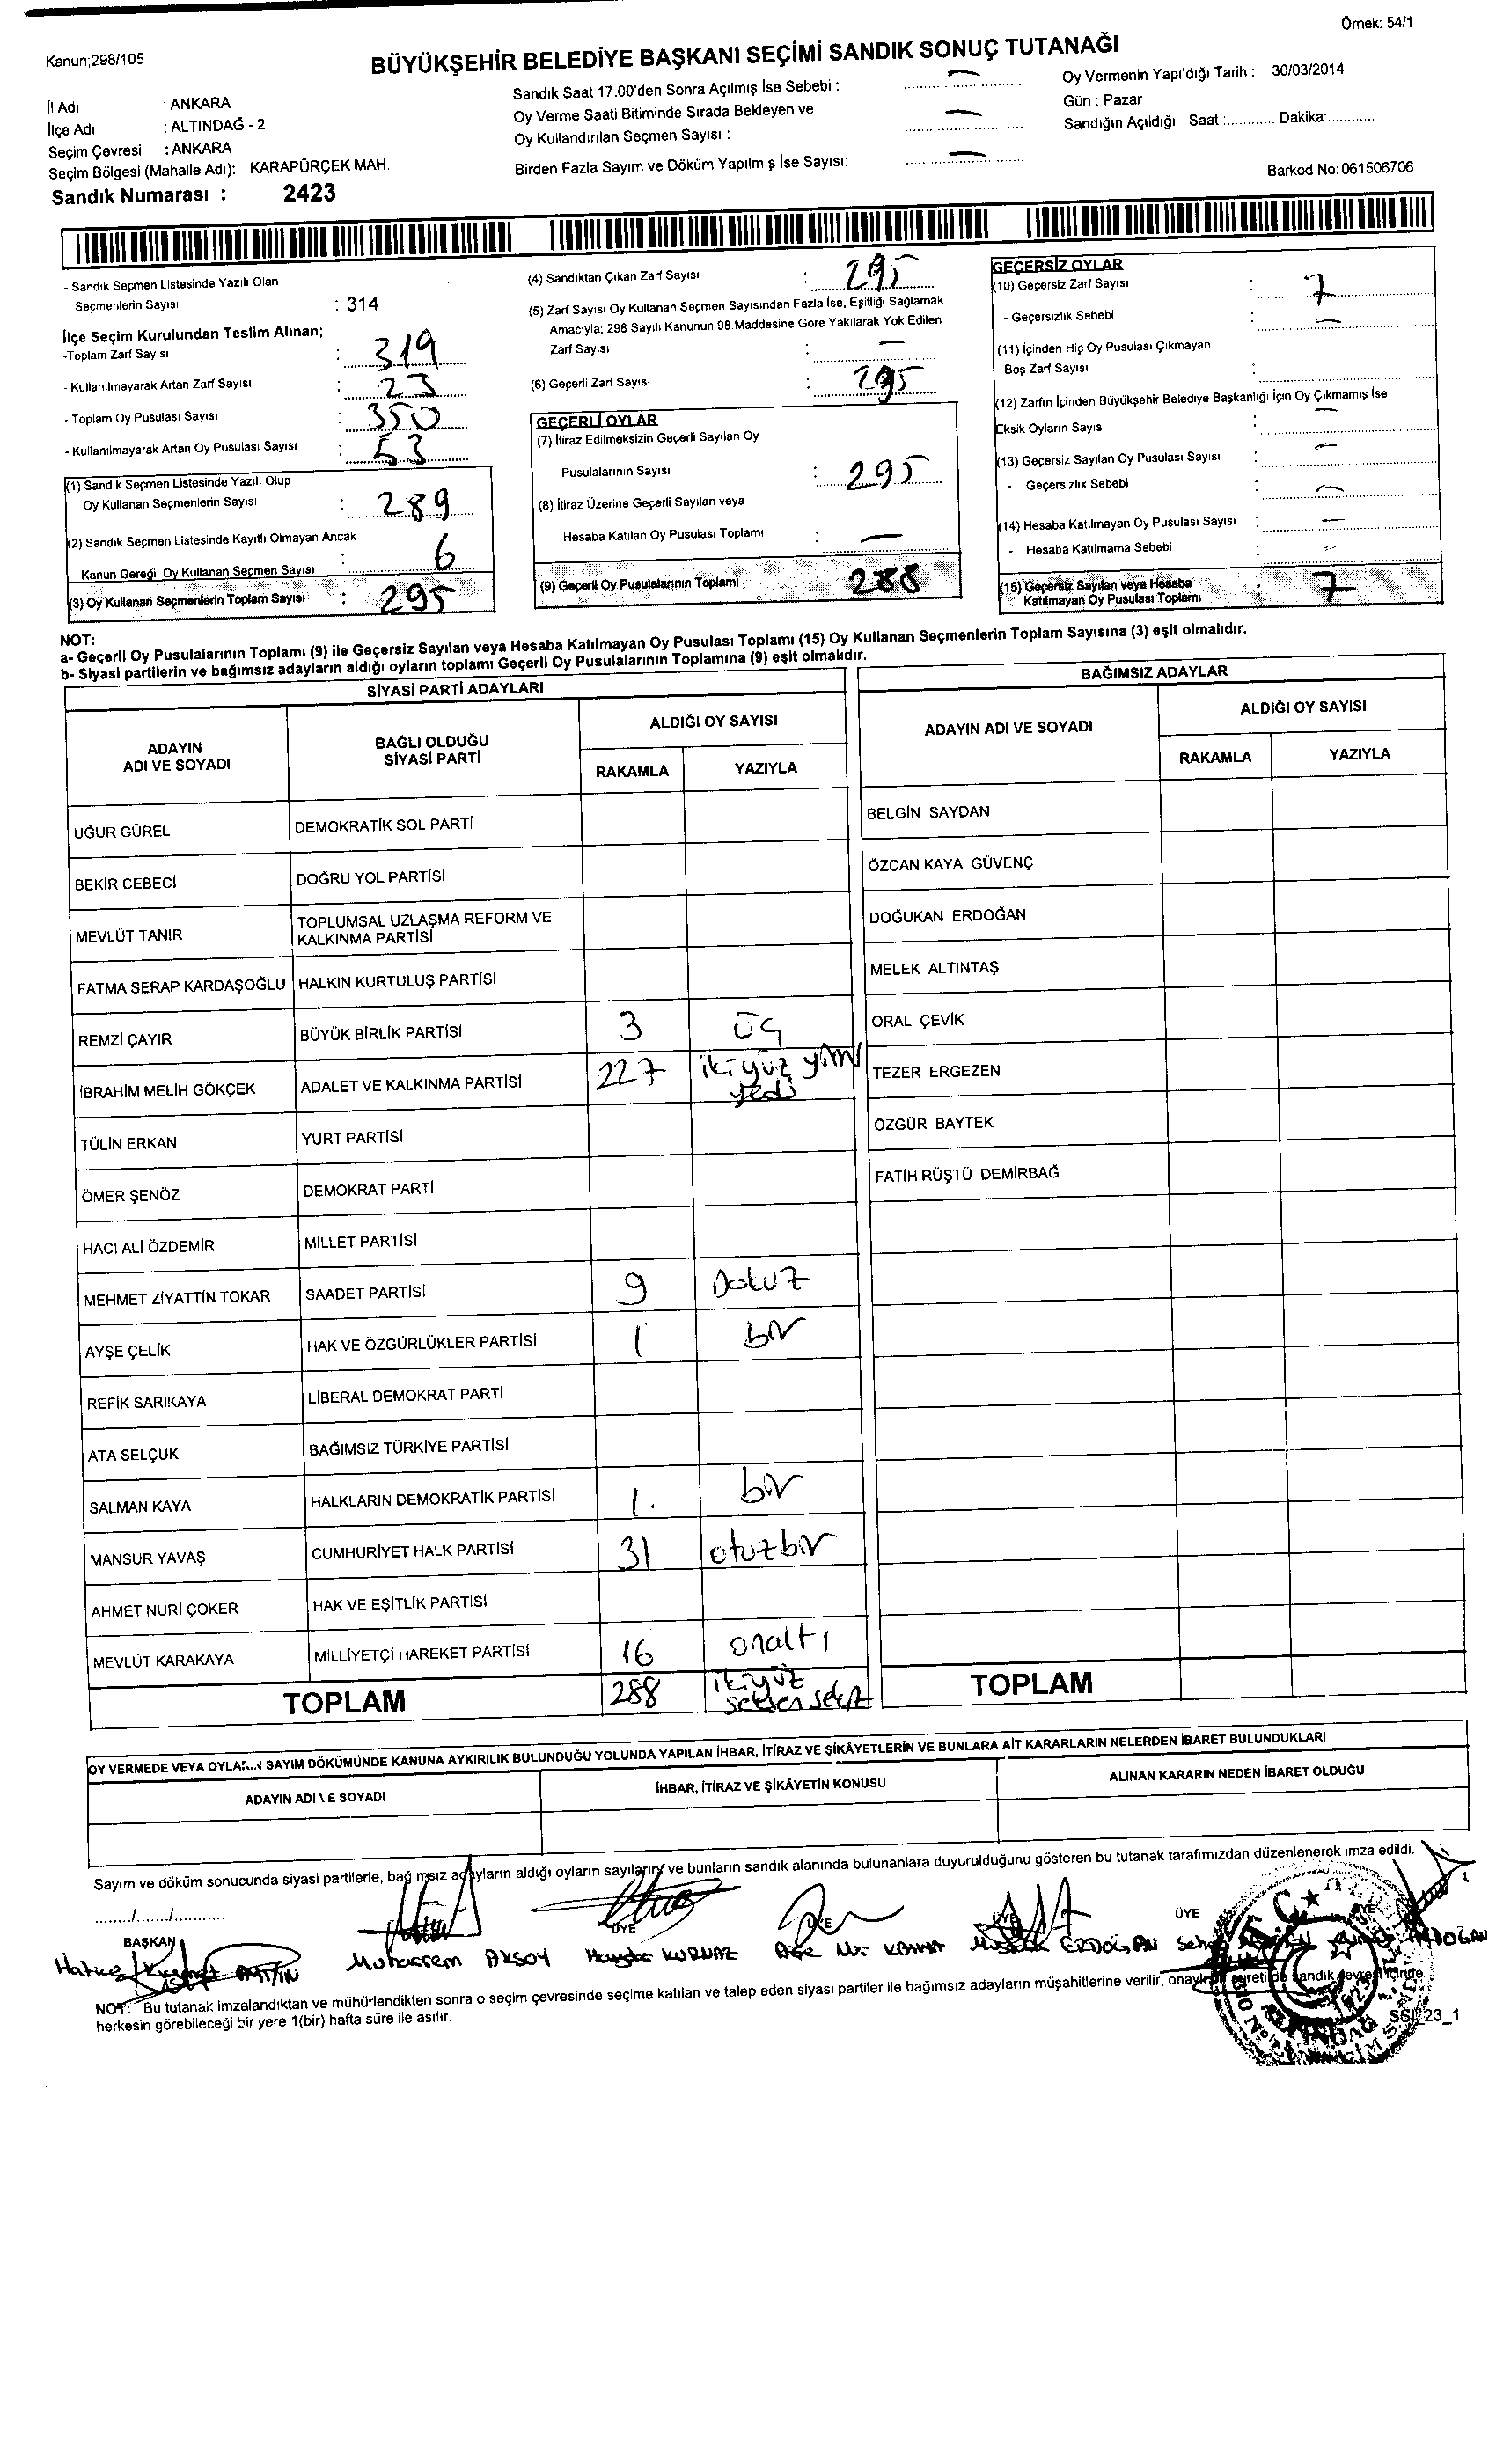 Örnek: 54/1
Kanun;298/105
BÜYÜKŞEHİR BELEDİYE BAŞKANI SEÇİMİ SANDIK SONUÇ TUTANAĞI
İl Adı : ANKARA
İlçe Adı : ALTINDAĞ - 2
Seçim Çevresi : ANKARA
Seçim Bölgesi (Mahalle Adı): KARAPÜRÇEK MAH.
Sandık Numarası : 2423
Sandık Saat 17.00'den Sonra Açılmış İse Sebebi : —
Oy Verme Saati Bitiminde Sırada Bekleyen ve
Oy Kullandırılan Seçmen Sayısı : —
Birden Fazla Sayım ve Döküm Yapılmış İse Sayısı: —
Oy Vermenin Yapıldığı Tarih : 30/03/2014
Gün : Pazar
Sandığın Açıldığı Saat :............ Dakika:............
Barkod No: 061506706
- Sandık Seçmen Listesinde Yazılı Olan
Seçmenlerin Sayısı : 314
İlçe Seçim Kurulundan Teslim Alınan;
-Toplam Zarf Sayısı : 319
- Kullanılmayarak Artan Zarf Sayısı : 23
- Toplam Oy Pusulası Sayısı : 350
- Kullanılmayarak Artan Oy Pusulası Sayısı : 53
(1) Sandık Seçmen Listesinde Yazılı Olup
Oy Kullanan Seçmenlerin Sayısı : 289
(2) Sandık Seçmen Listesinde Kayıtlı Olmayan Ancak
Kanun Gereği Oy Kullanan Seçmen Sayısı : 6
(3) Oy Kullanan Seçmenlerin Toplam Sayısı : 295
(4) Sandıktan Çıkan Zarf Sayısı : 295
(5) Zarf Sayısı Oy Kullanan Seçmen Sayısından Fazla İse, Eşitliği Sağlamak
Amacıyla; 298 Sayılı Kanunun 98.Maddesine Göre Yakılarak Yok Edilen
Zarf Sayısı : —
(6) Geçerli Zarf Sayısı : 295
GEÇERLİ OYLAR
(7) İtiraz Edilmeksizin Geçerli Sayılan Oy
Pusulalarının Sayısı : 295
(8) İtiraz Üzerine Geçerli Sayılan veya
Hesaba Katılan Oy Pusulası Toplamı : —
(9) Geçerli Oy Pusulalarının Toplamı : 288
GEÇERSİZ OYLAR
(10) Geçersiz Zarf Sayısı : 7
- Geçersizlik Sebebi : —
(11) İçinden Hiç Oy Pusulası Çıkmayan
Boş Zarf Sayısı :
(12) Zarfın İçinden Büyükşehir Belediye Başkanlığı İçin Oy Çıkmamış İse
Eksik Oyların Sayısı : —
(13) Geçersiz Sayılan Oy Pusulası Sayısı : —
- Geçersizlik Sebebi : —
(14) Hesaba Katılmayan Oy Pusulası Sayısı : —
- Hesaba Katılmama Sebebi : —
(15) Geçersiz Sayılan veya Hesaba
Katılmayan Oy Pusulası Toplamı : 7
NOT:
a- Geçerli Oy Pusulalarının Toplamı (9) ile Geçersiz Sayılan veya Hesaba Katılmayan Oy Pusulası Toplamı (15) Oy Kullanan Seçmenlerin Toplam Sayısına (3) eşit olmalıdır.
b- Siyasi partilerin ve bağımsız adayların aldığı oyların toplamı Geçerli Oy Pusulalarının Toplamına (9) eşit olmalıdır.
SİYASİ PARTİ ADAYLARI
ADAYIN ADI VE SOYADI BAĞLI OLDUĞU SİYASİ PARTİ ALDIĞI OY SAYISI
RAKAMLA YAZIYLA
UĞUR GÜREL DEMOKRATİK SOL PARTİ
BEKİR CEBECİ DOĞRU YOL PARTİSİ
MEVLÜT TANIR TOPLUMSAL UZLAŞMA REFORM VE
KALKINMA PARTİSİ
FATMA SERAP KARDAŞOĞLU HALKIN KURTULUŞ PARTİSİ
REMZİ ÇAYIR BÜYÜK BİRLİK PARTİSİ 3 üç
İBRAHİM MELİH GÖKÇEK ADALET VE KALKINMA PARTİSİ 227 ikiyüz yirmi
yedi
TÜLİN ERKAN YURT PARTİSİ
ÖMER ŞENÖZ DEMOKRAT PARTİ
HACI ALİ ÖZDEMİR MİLLET PARTİSİ
MEHMET ZİYATTİN TOKAR SAADET PARTİSİ 9 Dokuz
AYŞE ÇELİK HAK VE ÖZGÜRLÜKLER PARTİSİ 1 bir
REFİK SARIKAYA LİBERAL DEMOKRAT PARTİ
ATA SELÇUK BAĞIMSIZ TÜRKİYE PARTİSİ
SALMAN KAYA HALKLARIN DEMOKRATİK PARTİSİ 1. bir
MANSUR YAVAŞ CUMHURİYET HALK PARTİSİ 31 otuzbir
AHMET NURİ ÇOKER HAK VE EŞİTLİK PARTİSİ
MEVLÜT KARAKAYA MİLLİYETÇİ HAREKET PARTİSİ 16 onaltı
TOPLAM 288 ikiyüz
seksen sekiz
BAĞIMSIZ ADAYLAR
ADAYIN ADI VE SOYADI ALDIĞI OY SAYISI
RAKAMLA YAZIYLA
BELGİN SAYDAN
ÖZCAN KAYA GÜVENÇ
DOĞUKAN ERDOĞAN
MELEK ALTINTAŞ
ORAL ÇEVİK
TEZER ERGEZEN
ÖZGÜR BAYTEK
FATİH RÜŞTÜ DEMİRBAĞ
TOPLAM
OY VERMEDE VEYA OYLARIN SAYIM DÖKÜMÜNDE KANUNA AYKIRILIK BULUNDUĞU YOLUNDA YAPILAN İHBAR, İTİRAZ VE ŞİKÂYETLERİN VE BUNLARA AİT KARARLARIN NELERDEN İBARET BULUNDUKLARI
ADAYIN ADI VE SOYADI İHBAR, İTİRAZ VE ŞİKÂYETİN KONUSU ALINAN KARARIN NEDEN İBARET OLDUĞU
Sayım ve döküm sonucunda siyasi partilerle, bağımsız adayların aldığı oyların sayılarını ve bunların sandık alanında bulunanlara duyurulduğunu gösteren bu tutanak tarafımızdan düzenlenerek imza edildi.
......./......./............
BAŞKAN ÜYE ÜYE ÜYE ÜYE ÜYE
Muharrem AKSOY KURNAZ ERDOĞAN
NOT: Bu tutanak imzalandıktan ve mühürlendikten sonra o seçim çevresinde seçime katılan ve talep eden siyasi partiler ile bağımsız adayların müşahitlerine verilir, onaylı bir sureti de sandık çevresi içinde
herkesin görebileceği bir yere 1(bir) hafta süre ile asılır.
23_1